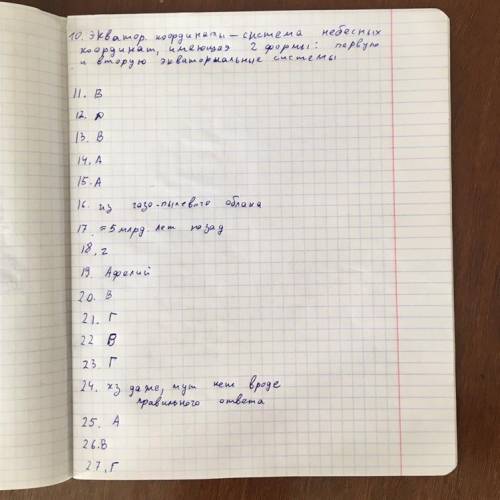 10. Экватор. координаты – система небесных
координат, имеющая 2 формы: первую
и вторую экваториальные системы
11. В
12. А
13. В
14. А
15. А
16. из газо-пылевого облака
17. ≈ 5 млрд. лет назад
18. г
19. Афелий
20. В
21. Г
22 В
23 Г
24. хз даже, тут нет вроде
правильного ответа
25. А
26. В
27. Г